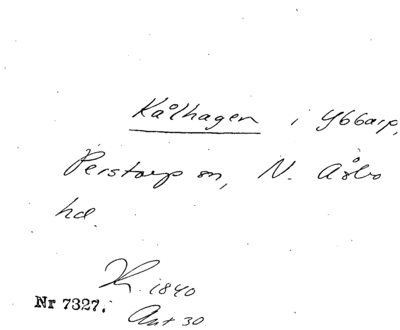 Kålhagen i Ybbarp,
Perstorp sn, N. Åsbo
hd.
1840
Nr 7327. Ant 30